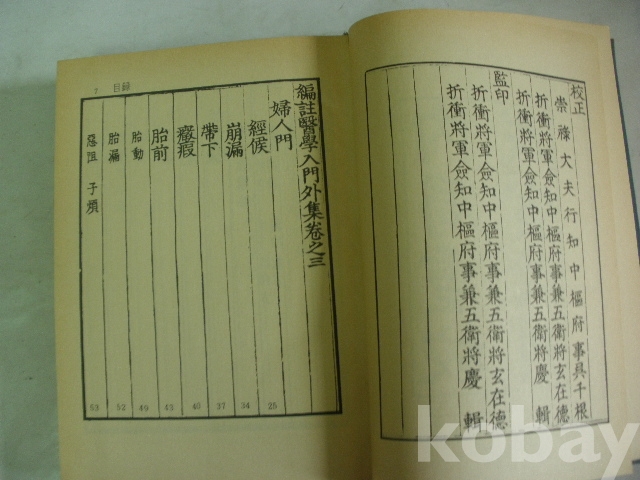 校正
崇祿大夫行知中樞府事具千根
折衝將軍僉知中樞府事兼五衛將玄在德
折衝將軍僉知中樞府事兼五衛將慶 輯
監印
折衝將軍僉知中樞府事兼五衛將玄在德
折衝將軍僉知中樞府事兼五衛將慶 輯
7 目錄
編註醫學入門外集卷之三
婦人門
經候 25
崩漏 34
帶下 37
癥瘕 40
胎前 45
胎動 49
胎漏 52
惡阻 子煩 53
kobay